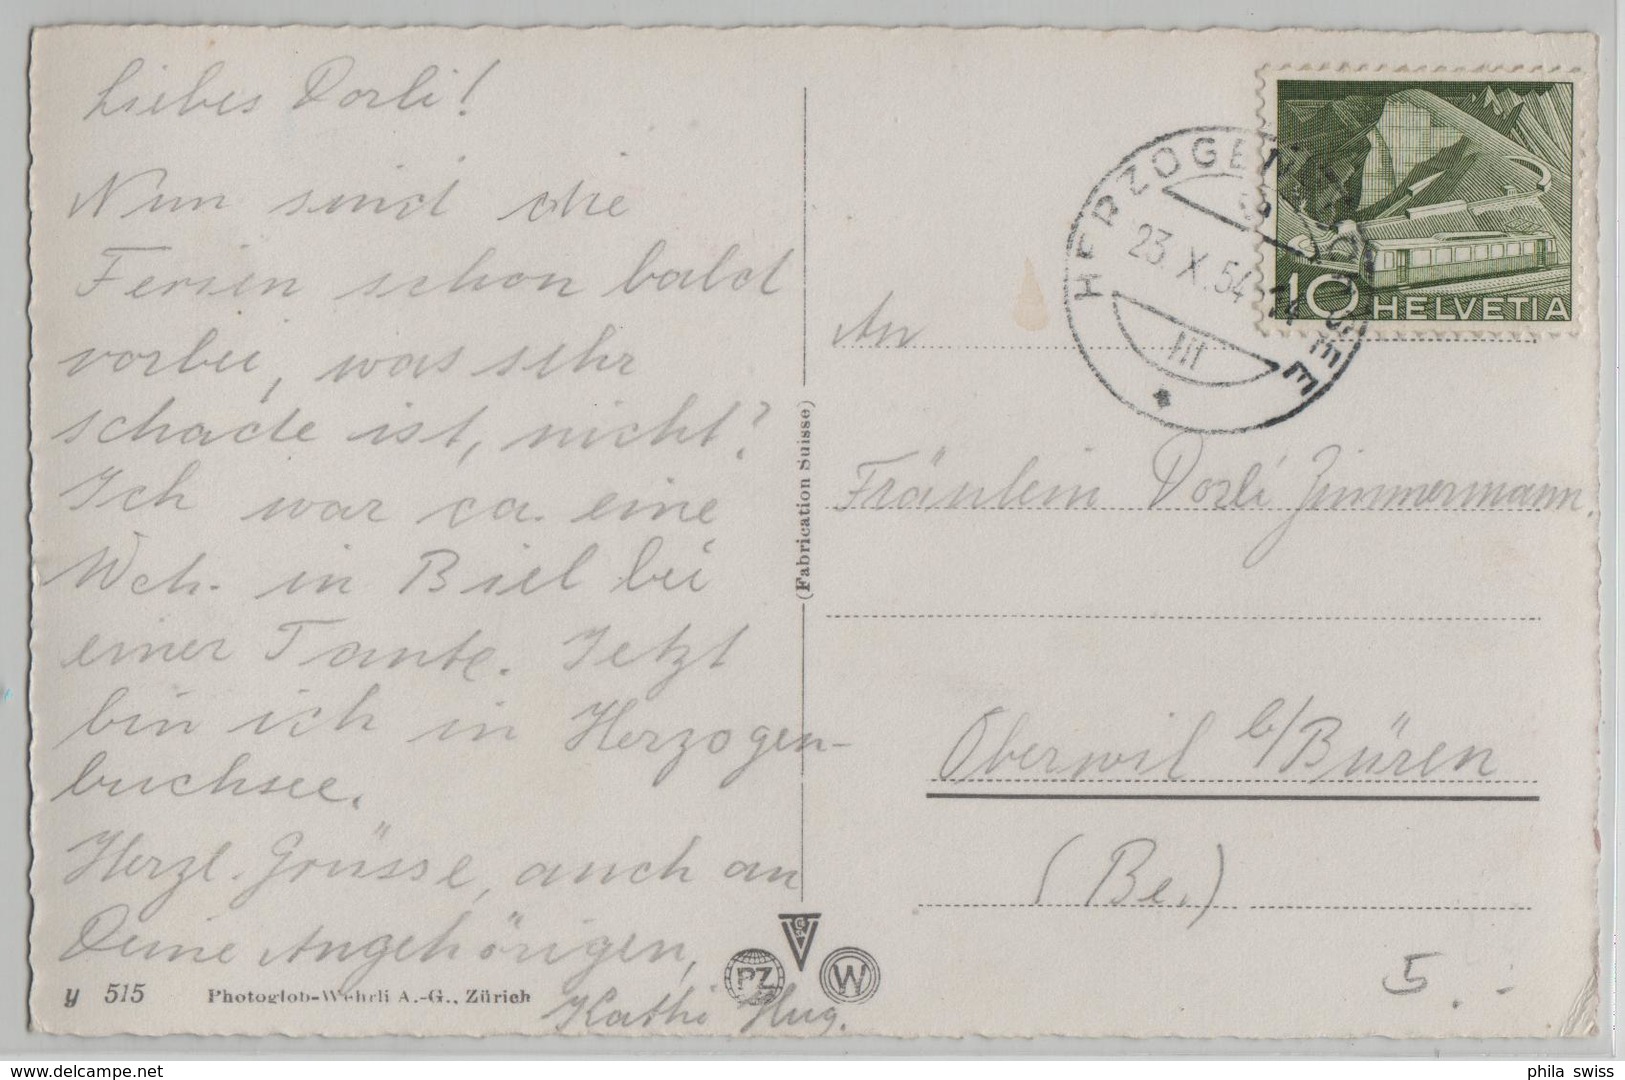 Liebes Dorli!
Nun sind die
Ferien schon bald
vorbei, was sehr
schade ist, nicht?
Ich war ca. eine
Wch. in Biel bei
einer Tante. Jetzt
bin ich in Herzogen-
buchsee.
Herzl. Grüsse, auch an
Deine Angehörigen,
Kathi Hug.
y 515 Photoglob-Wehrli A.-G., Zürich
(Fabrication Suisse)
PZ
W
HERZOGENBUCHSEE
23.X.54
10 HELVETIA
An
Fräulein Dorli Zimmermann.
Oberwil b/Büren
(Be.)
5.-
phila swiss
www.delcampe.net